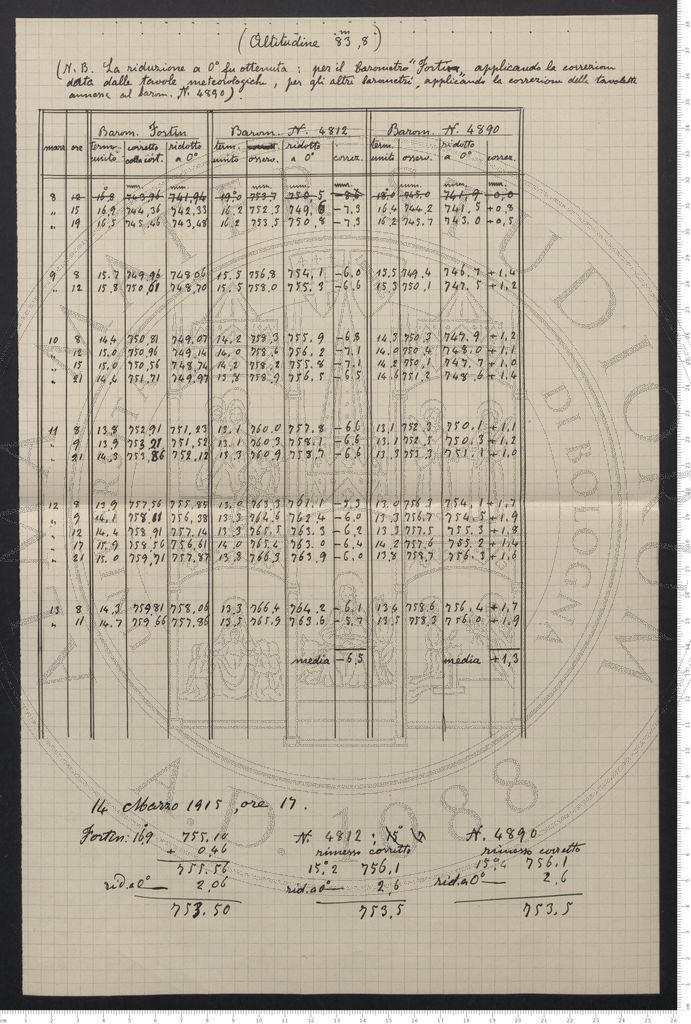 (Altitudine 83,8 m)
(N.B. La riduzione a 0° fu ottenuta: per il barometro "Fortin", applicando la correzione
data dalle tavole meteorologiche, per gli altri barometri, applicando la correzione delle tavolette
annesse al barom. N. 4890).
Barom. Fortin Barom. N. 4812 Barom. N. 4890
marzo ore term. unito corretto ridotto a 0° term. unito osserv. ridotto a 0° correz. term. unito osserv. ridotto a 0° correz.
mm. mm. mm. mm. mm. mm. mm. mm.
8 12 16,8 743,96 741,94 19,0 753,7 18,0 745,0 741,9
" 15 16,9 744,36 742,33 16,2 752,3 749,6 -7,3 16,4 744,2 741,5 +0,8
" 19 16,5 745,46 743,48 16,2 753,5 750,8 -7,3 16,2 745,7 743,0 +0,5
9 8 15.7 749,96 748,06 15.5 756,8 754,1 -6,0 15,5 749,4 746,7 +1,4
" 12 15,8 750,61 748,70 15,5 758,0 755,3 -6,6 15,3 750,1 747,5 +1,2
10 8 14,4 750,81 749,07 14,2 758,3 755,9 -6,8 14,3 750,3 747,9 +1,2
" 12 15,0 750,96 749,14 14,0 758,6 756,2 -7,1 14,0 750,4 748,0 +1,1
" 15 15,0 750,56 748,74 14,2 758,2 755,8 -7,1 14,2 750,1 747,7 +1,0
" 21 14,4 751,71 749,97 13,8 758,9 756,5 -6,5 14,0 751,2 748,6 +1,4
11 8 13,8 752,91 751,23 13,1 760,0 757,8 -6,6 13,1 752,3 750,1 +1,1
" 9 13,9 753,21 751,52 13,1 760,3 758,1 -6,6 13,1 752,5 750,3 +1,2
" 21 14,3 753,86 752,12 13,3 760,9 758,7 -6,6 13,3 753,3 751,1 +1,0
12 8 13,9 757,56 755,85 13,0 763,3 761,1 -5,3 13,0 756,3 754,1 +1,7
" 9 14,1 758,11 756,38 13,3 764,6 762,4 -6,0 13,3 756,7 754,5 +1,9
" 12 14,4 758,91 757,14 13,3 765,5 763,3 -6,2 13,3 757,5 755,3 +1,8
" 17 15,9 758,56 756,61 14,0 765,4 763,0 -6,4 14,2 757,6 755,2 +1,4
" 21 15,0 759,71 757,87 13,8 766,3 763,9 -6,0 13,8 758,7 756,3 +1,6
13 8 14,3 759,81 758,06 13,3 766,4 764,2 -6,1 13,4 758,6 756,4 +1,7
" 11 14,7 759,66 757,86 13,5 765,9 763,6 -5,7 13,5 758,3 756,0 +1,9
media -6,5 media +1,3
14 Marzo 1915, ore 17.
Fortin: 16,9 755,10 N. 4812: N. 4890
+ 0,46 rimesso corretto rimesso corretto
755,56 15°,2 756,1 15°,4 756,1
rid. a 0° 2,06 rid. a 0° 2,6 rid. a 0° 2,6
753,50 753,5 753,5
ALMA MATER STUDIORUM
A.D. 1088
DI BOLOGNA